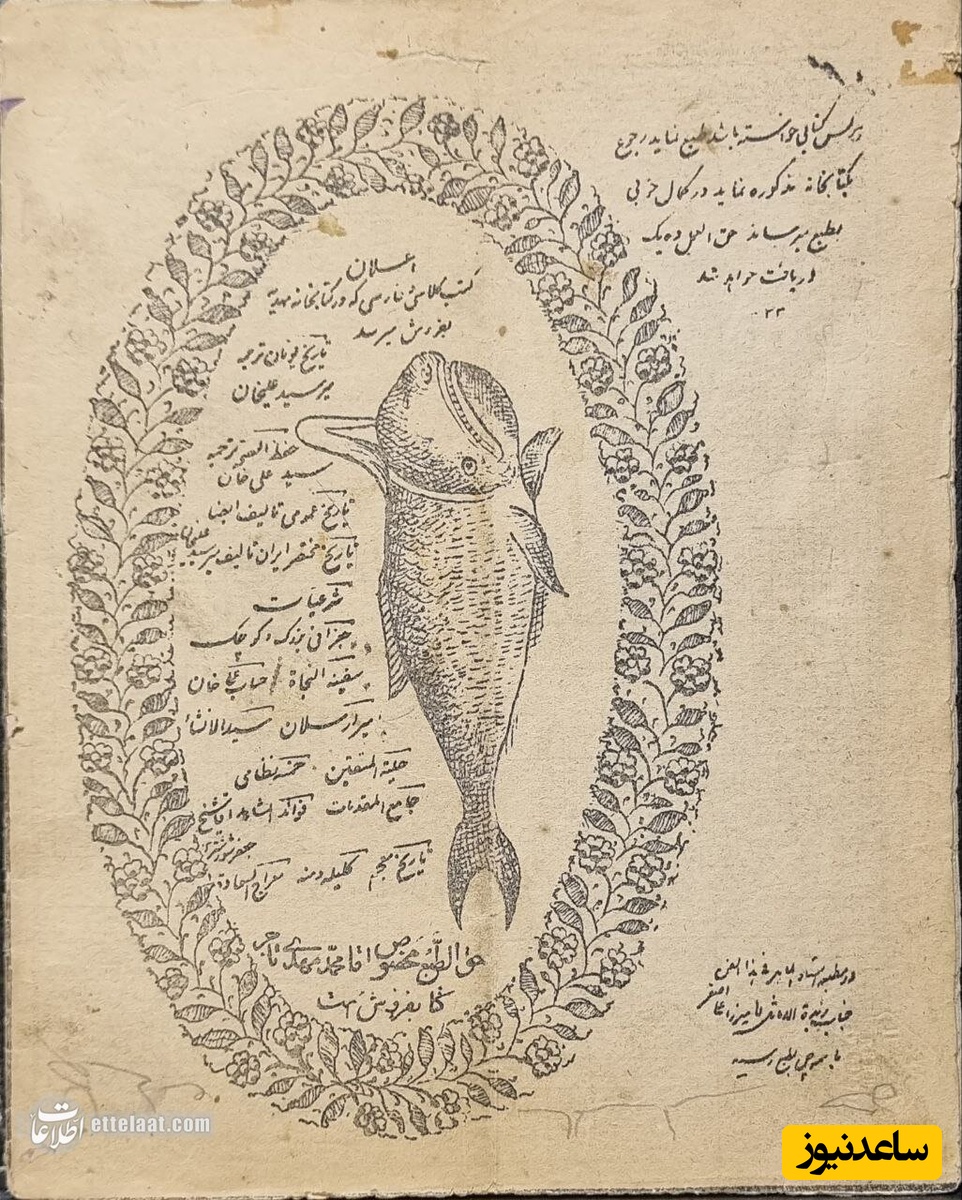 هر کس کتابی خواسته باشد طبع نماید رجوع
بکتابخانه مذکوره نماید در کمال خوبی
بطبع میرساند حق العمل ده یک
دریافت خواهد شد
۲۳
اعلان
کتب کلاسی فارسی که در کتابخانه مهدیه
بفروش میرسد
تاریخ یونان ترجمه
میر سید علیخان
حفظ الصحه ترجمه
سید علی خان
تاریخ عمومی تالیف ایضا
تاریخ مختصر ایران تالیف میر سید علیخان
شرعیات
جغرافی بزرگ و کوچک
سفینه النجاة حساب خان
امیر ارسلان سیدالانشاء
حلیة المتقین خمسه نظامی
جامع المقدمات فوائد المشاهد اقا شیخ
جعفر شوشتری
تاریخ معجم کلیله دمنه معراج السعادة
حق الطبع مخصوص اقا محمد مهدی تاجر
کتابفروش است
در مطبعه استاد الماهر فی هذا الفن
جناب زبدة میرزا علی اصغر
باسمه چی بطبع رسید
اطلاعات ettelaat.com
ساعدنیوز